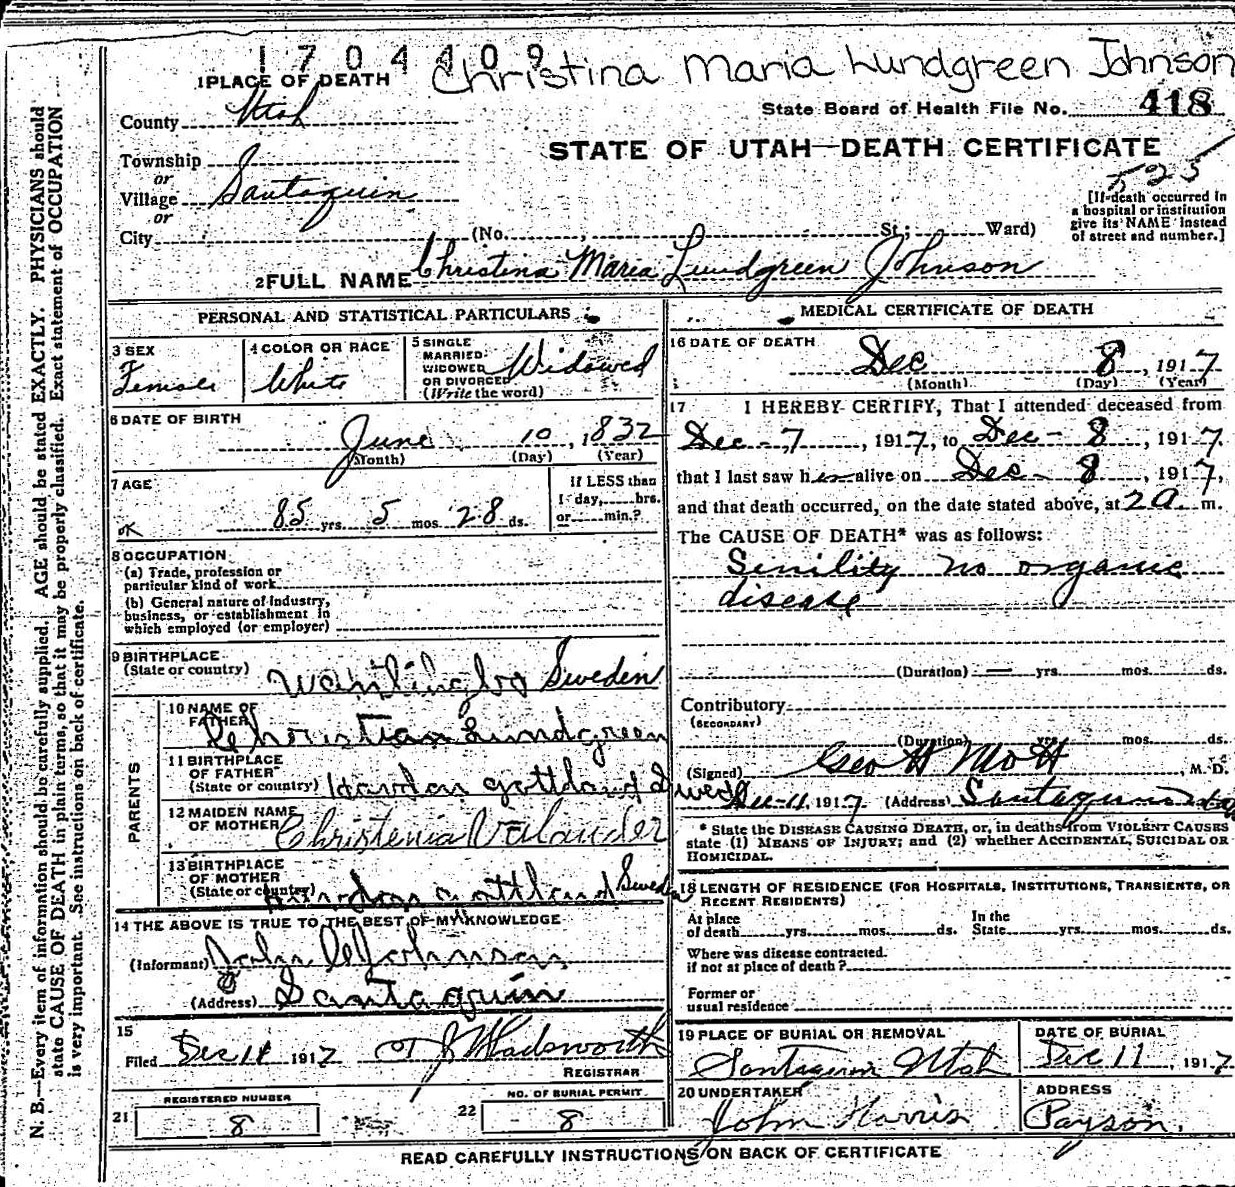 1704409
Christina Maria Lundgreen Johnson
1 PLACE OF DEATH
State Board of Health File No. 418
County Utah
STATE OF UTAH—DEATH CERTIFICATE
525
Township
or
Village Santaquin
or
City (No. , St.; Ward)
[If death occurred in a hospital or institution give its NAME instead of street and number.]
2 FULL NAME Christina Maria Lundgreen Johnson
PERSONAL AND STATISTICAL PARTICULARS
3 SEX
Female
4 COLOR OR RACE
White
5 SINGLE
MARRIED
WIDOWED
OR DIVORCED
(Write the word)
Widowed
6 DATE OF BIRTH
June 10, 1832
(Month) (Day) (Year)
7 AGE
If LESS than
1 day, hrs.
or min.?
OK
85 yrs. 5 mos. 28 ds.
8 OCCUPATION
(a) Trade, profession or
particular kind of work
(b) General nature of industry,
business, or establishment in
which employed (or employer)
9 BIRTHPLACE
(State or country) Sweden
PARENTS
10 NAME OF
FATHER
Christian Lundgreen
11 BIRTHPLACE
OF FATHER
(State or country) Gottland Swed
12 MAIDEN NAME
OF MOTHER
Christenia Valander
13 BIRTHPLACE
OF MOTHER
(State or country) Gottland Sweden
14 THE ABOVE IS TRUE TO THE BEST OF MY KNOWLEDGE
(Informant) John C Johnson
(Address) Santaquin
15
Filed Dec 11 1917 Wadsworth
REGISTRAR
REGISTERED NUMBER
21 8
NO. OF BURIAL PERMIT
22 8
MEDICAL CERTIFICATE OF DEATH
16 DATE OF DEATH
Dec 8, 1917
(Month) (Day) (Year)
17 I HEREBY CERTIFY, That I attended deceased from
Dec - 7, 1917, to Dec - 8, 1917,
that I last saw her alive on Dec - 8, 1917,
and that death occurred, on the date stated above, at 2 a m.
The CAUSE OF DEATH* was as follows:
Sinility no organic
disease
(Duration) — yrs. mos. ds.
Contributory
(SECONDARY)
(Duration) yrs. mos. ds.
(Signed) Geo H Mott, M. D.
Dec-11, 1917 (Address) Santaquin Utah
* State the DISEASE CAUSING DEATH, or, in deaths from VIOLENT CAUSES
state (1) MEANS OF INJURY; and (2) whether ACCIDENTAL, SUICIDAL OR
HOMICIDAL.
18 LENGTH OF RESIDENCE (FOR HOSPITALS, INSTITUTIONS, TRANSIENTS, OR
RECENT RESIDENTS)
At place
of death yrs. mos. ds.
In the
State yrs. mos. ds.
Where was disease contracted.
if not at place of death?
Former or
usual residence
19 PLACE OF BURIAL OR REMOVAL
Santaquin Utah
DATE OF BURIAL
Dec 11, 1917
20 UNDERTAKER
John Harris
ADDRESS
Payson.
READ CAREFULLY INSTRUCTIONS ON BACK OF CERTIFICATE
N. B.—Every item of information should be carefully supplied. AGE should be stated EXACTLY. PHYSICIANS should
state CAUSE OF DEATH in plain terms, so that it may be properly classified. Exact statement of OCCUPATION
is very important. See instructions on back of certificate.